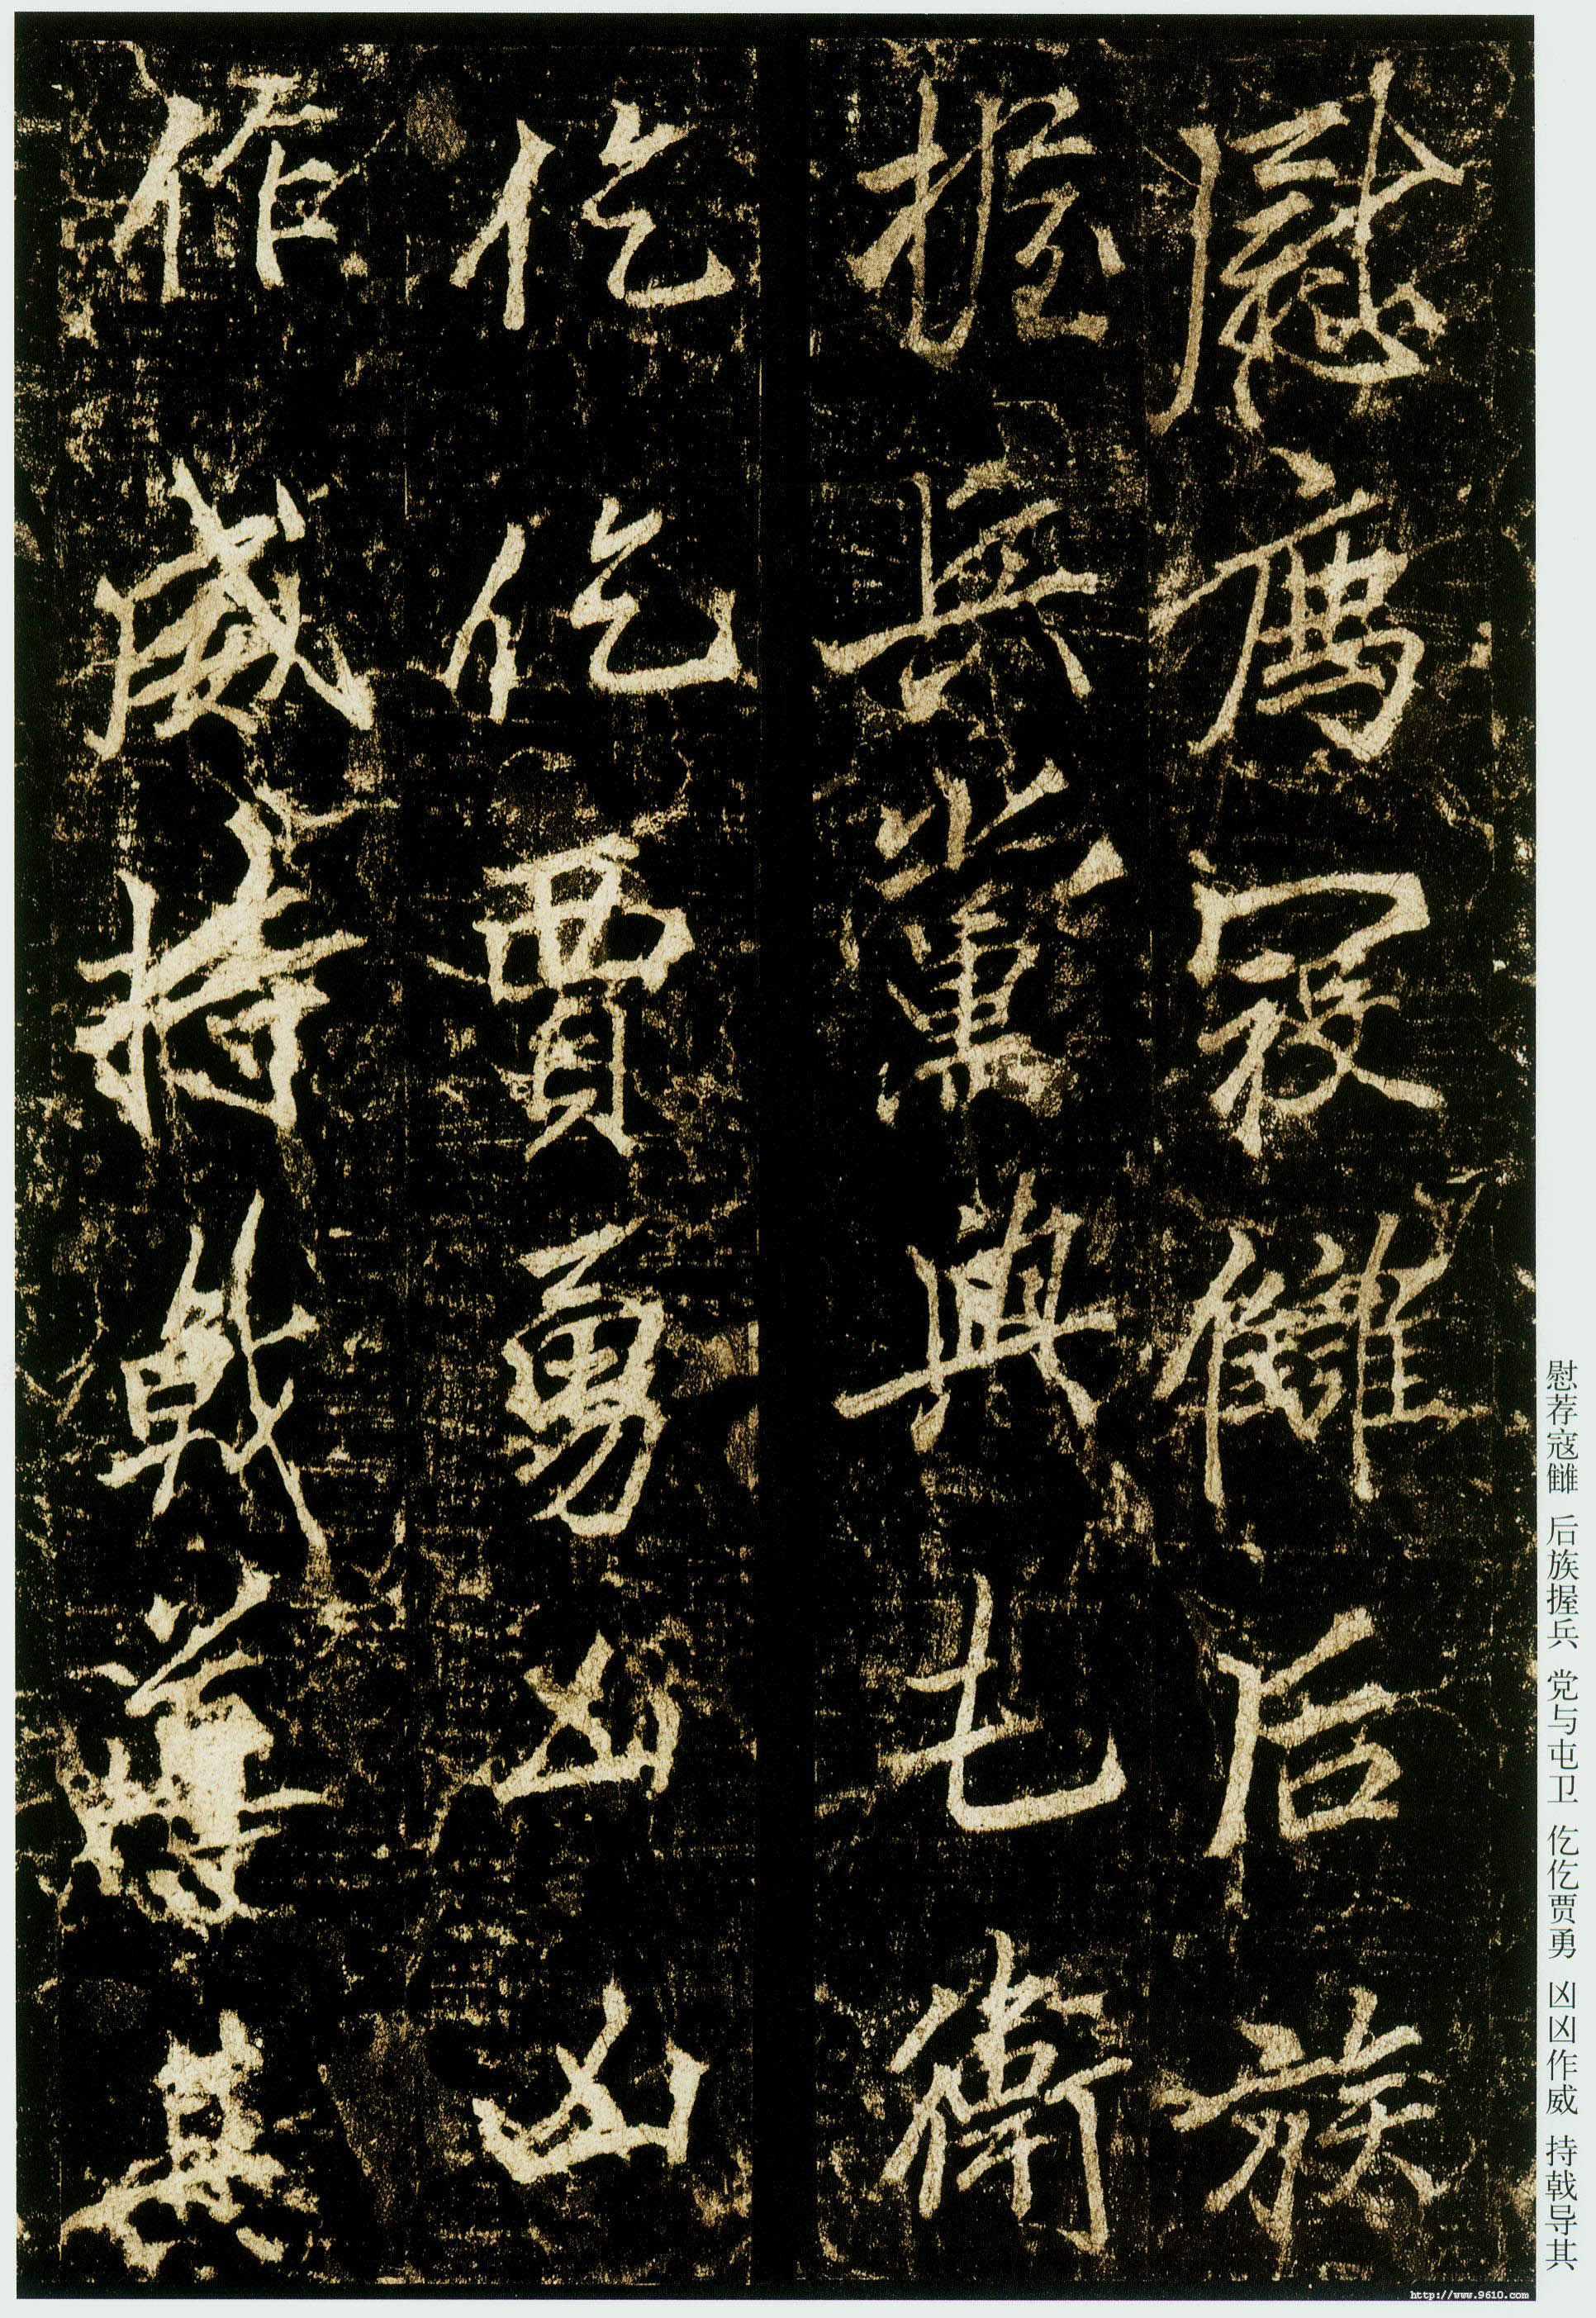 慰廌寇讎后族
握兵黨與屯衛
仡仡賈勇凶凶
作威持戟導其
慰荐寇雠 后族握兵 党与屯卫 仡仡贾勇 凶凶作威 持戟导其
http://www.9610.com